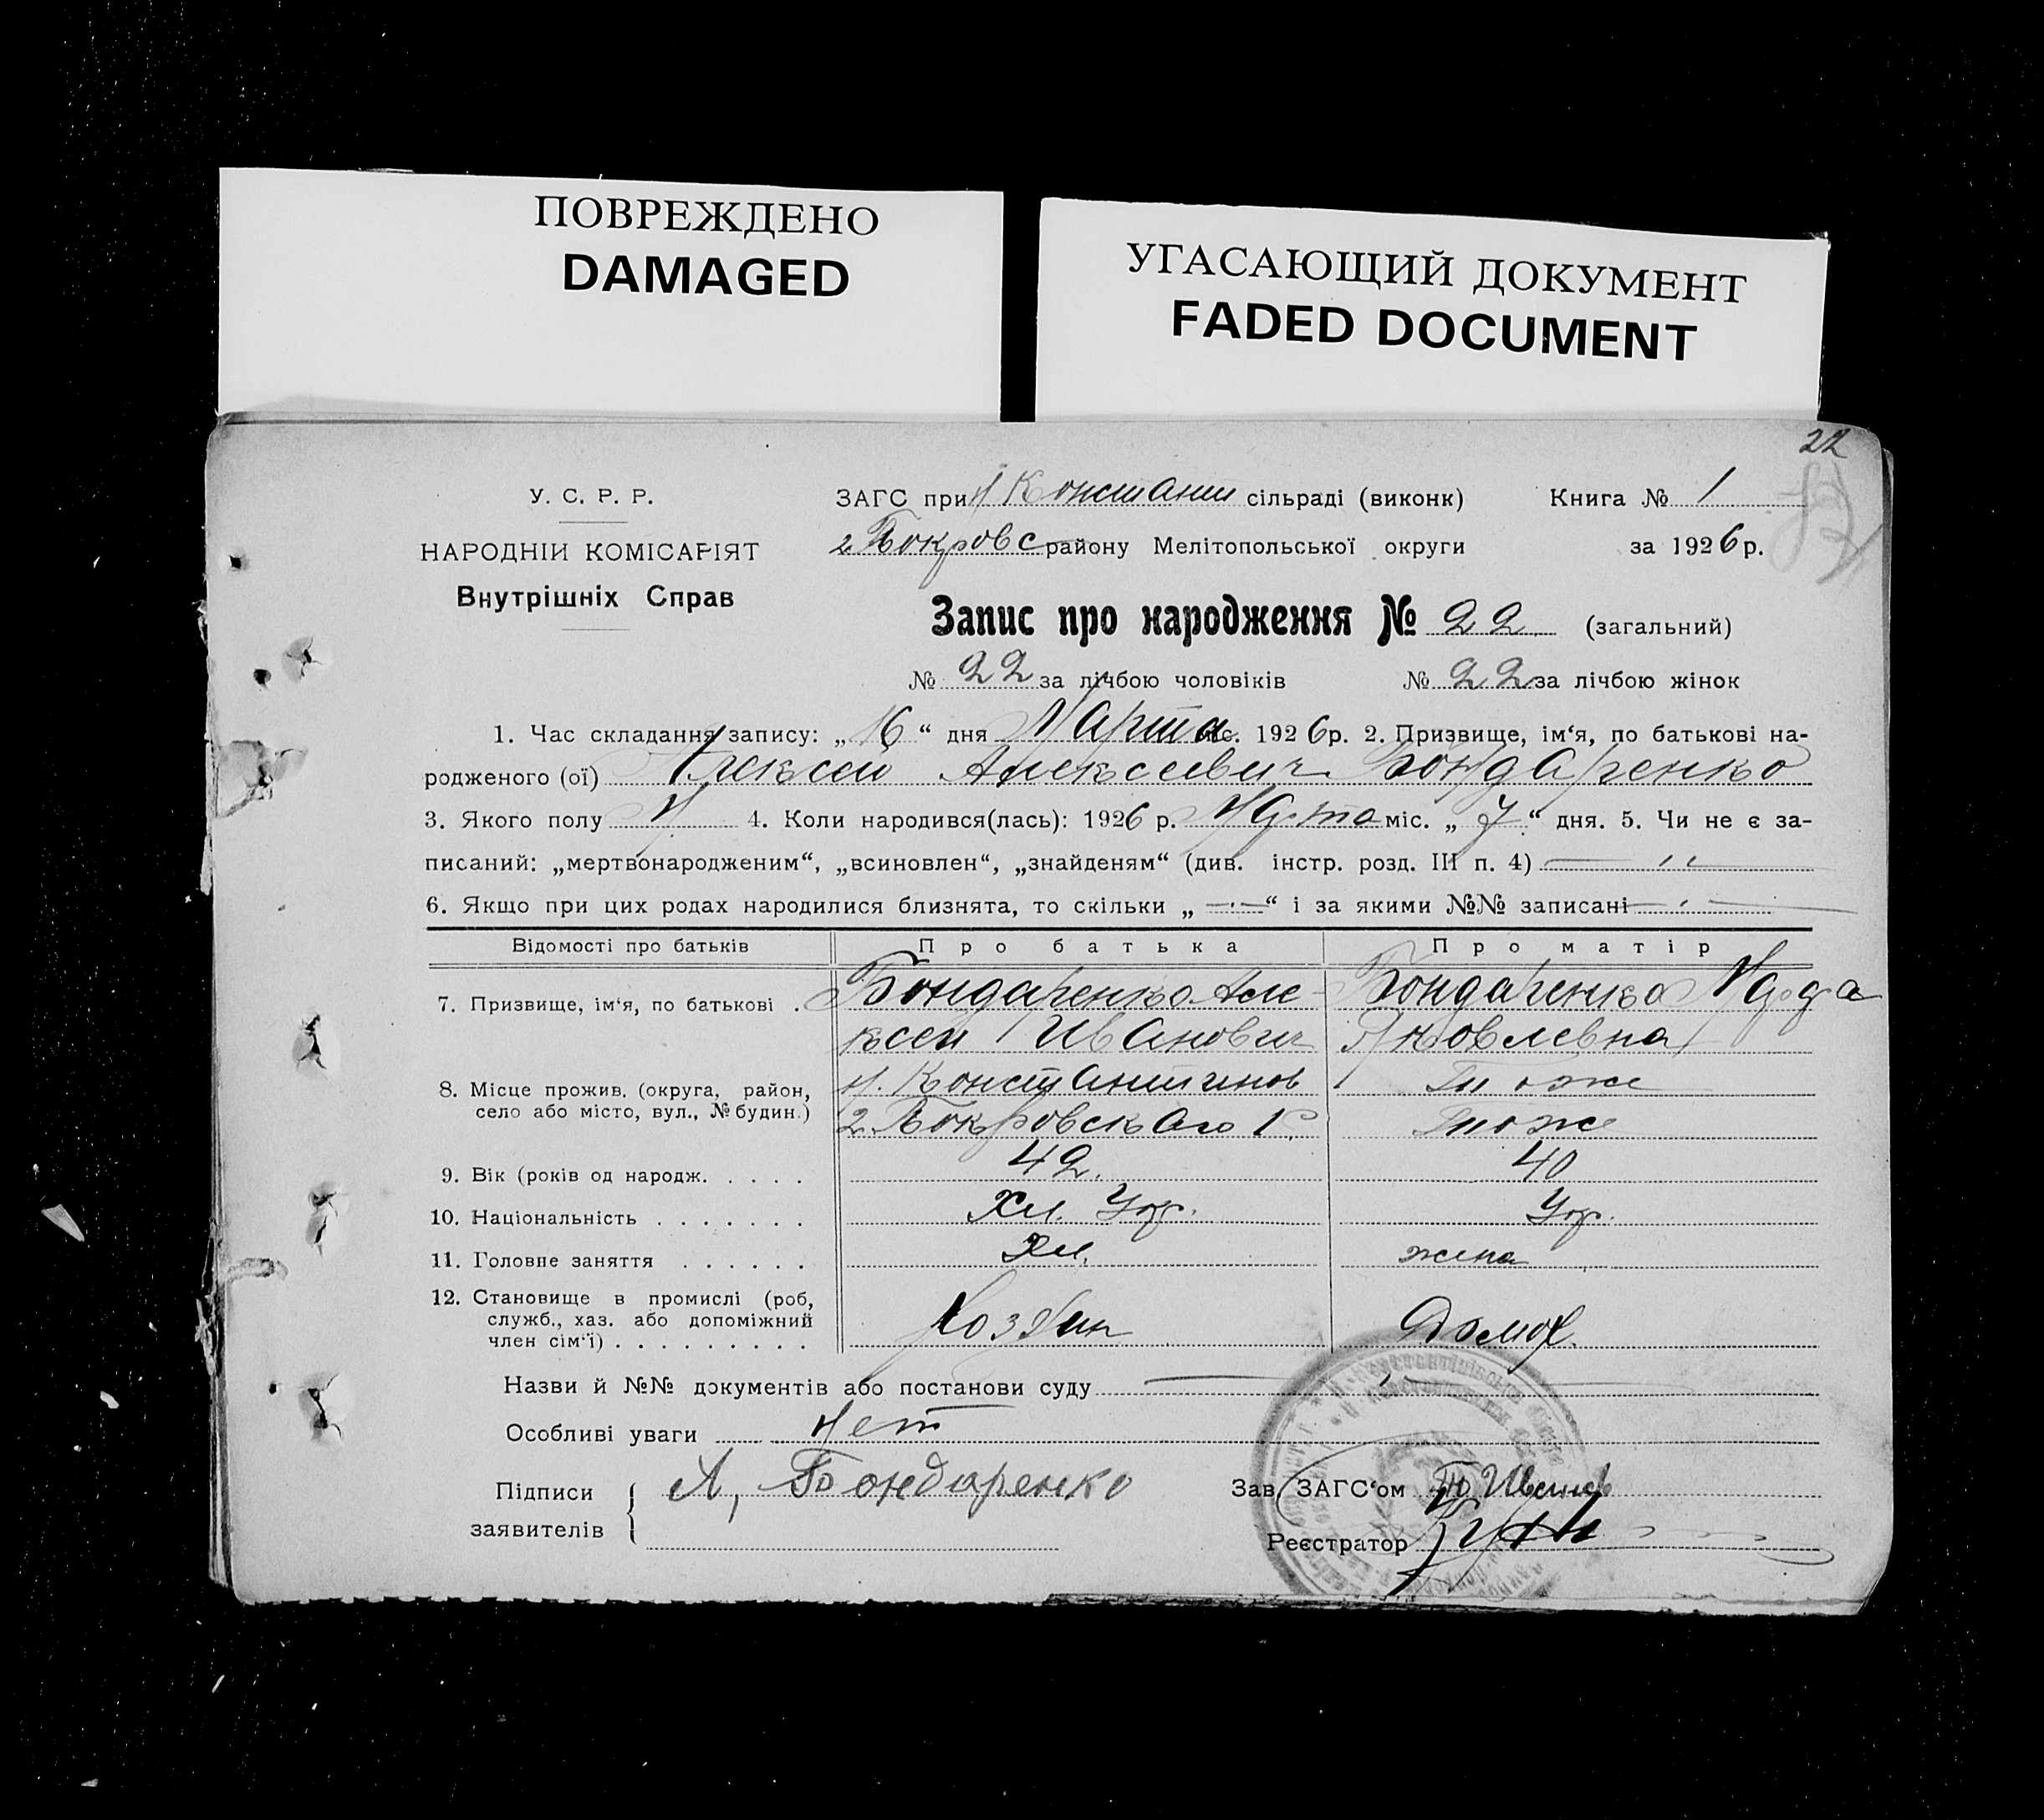 ПОВРЕЖДЕНО
DAMAGED
УГАСАЮЩИЙ ДОКУМЕНТ
FADED DOCUMENT
22
У. С. Р. Р.
НАРОДНІЙ КОМІСАРІЯТ
Внутрішніх Справ
ЗАГС при Н Констант сільраді (виконк) Книга № 1
2 Покровс району Мелітопольської округи за 1926 р.
Запис про народження № 22 (загальний)
№ 22 за лічбою чоловіків № 22 за лічбою жінок
1. Час складання запису: „16“ дня Марта міс. 1926 р. 2. Призвище, ім‘я, по батькові на-
родженого (ої) Алексей Алексеевич Бондаренко
3. Якого полу М 4. Коли народився(лась): 1926 р. Марта міс. „7“ дня. 5. Чи не є за-
писаний: „мертвонародженим“, „всиновлен“, „знайденям“ (див. інстр. розд. III п. 4)
6. Якщо при цих родах народилися близнята, то скільки „ — “ і за якими №№ записані
Відомості про батьків Про батька Про матір
7. Призвище, ім‘я, по батькові . Бондаренко Але- Бондаренко
ксей Иванович Яковлевна
8. Місце прожив. (округа, район, Н. Константинов Тоже
село або місто, вул., № будин.) 2 Покровского Р. тоже
9. Вік (років од народж. . . . . 42. 40
10. Національність . . . . . . . Хл. Укр. Укр.
11. Головне заняття . . . . . . Хл. жена
12. Становище в промислі (роб,
служб., хаз. або допоміжний
член сім‘ї) . . . . . . . . . Хозяин Домох.
Назви й №№ документів або постанови суду
Особливі уваги Нет
Підписи А, Бондаренко Зав. ЗАГС‘ом
заявителів
Реєстратор